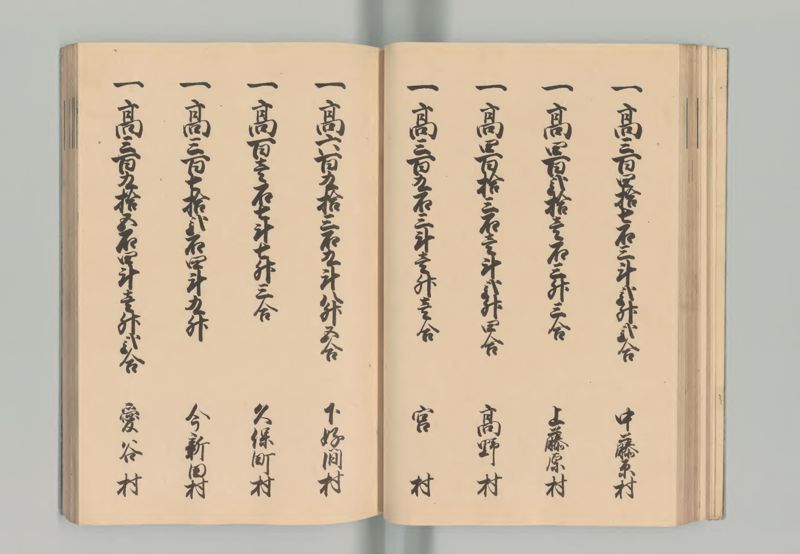 一高三百四拾七石三斗弐升弐合 中藤原村
一高四百弐拾壱石三升三合 上藤原村
一高四百拾三石壱斗弐升四合 高野村
一高三百九石三斗壱升壱合 宮村
一高六百九拾三石九斗八升五合 下好間村
一高百壱石七斗七升三合 久保町村
一高三百七拾弐石四斗九升 今新田村
一高三百九拾五石四斗壱升弐合 愛谷村